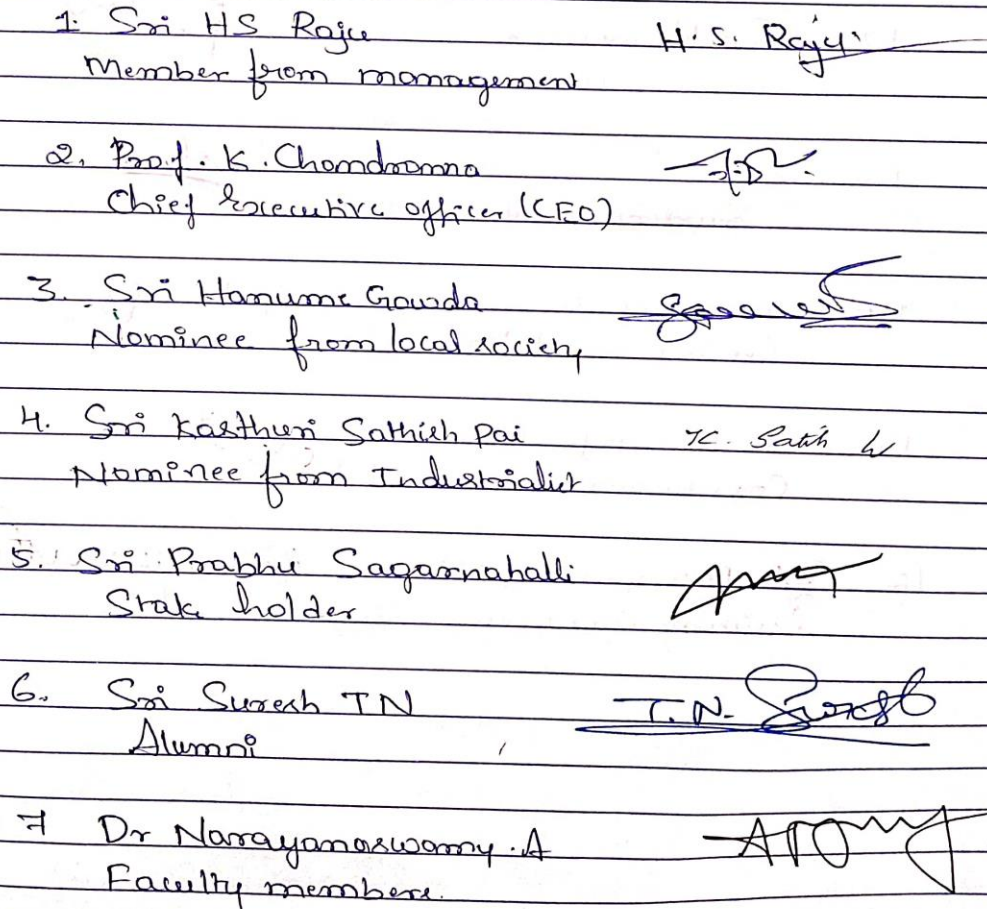 1. Sri HS Raju H. S. Raju
Member from management
2. Prof. K. Chandranna
Chief Executive officer (CEO)
3. Sri Hanume Gowda
Nominee from local society
4. Sri Kasthuri Sathish Pai K. Satish
Nominee from Industrialist
5. Sri Prabhu Sagarnahalli
Stake holder
6. Sri Suresh TN T.N. Suresh
Alumni
7 Dr Narayanaswamy.A
Faculty members.